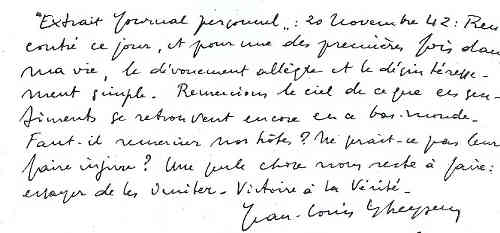 "Extrait Journal personnel": 20 Novembre 42: Ren
contré ce jour, et pour une des premières fois dans
ma vie, le dévouement allègre et le désintéresse-
ment simple. Remercions le ciel de ce que ces sen-
timents se retrouvent encore en ce bas-monde.
Faut-il remercier nos hôtes? Ne serait-ce pas leur
faire injure? Une seule chose nous reste à faire:
essayer de les imiter. Victoire à la Vérité.
Jean-Louis